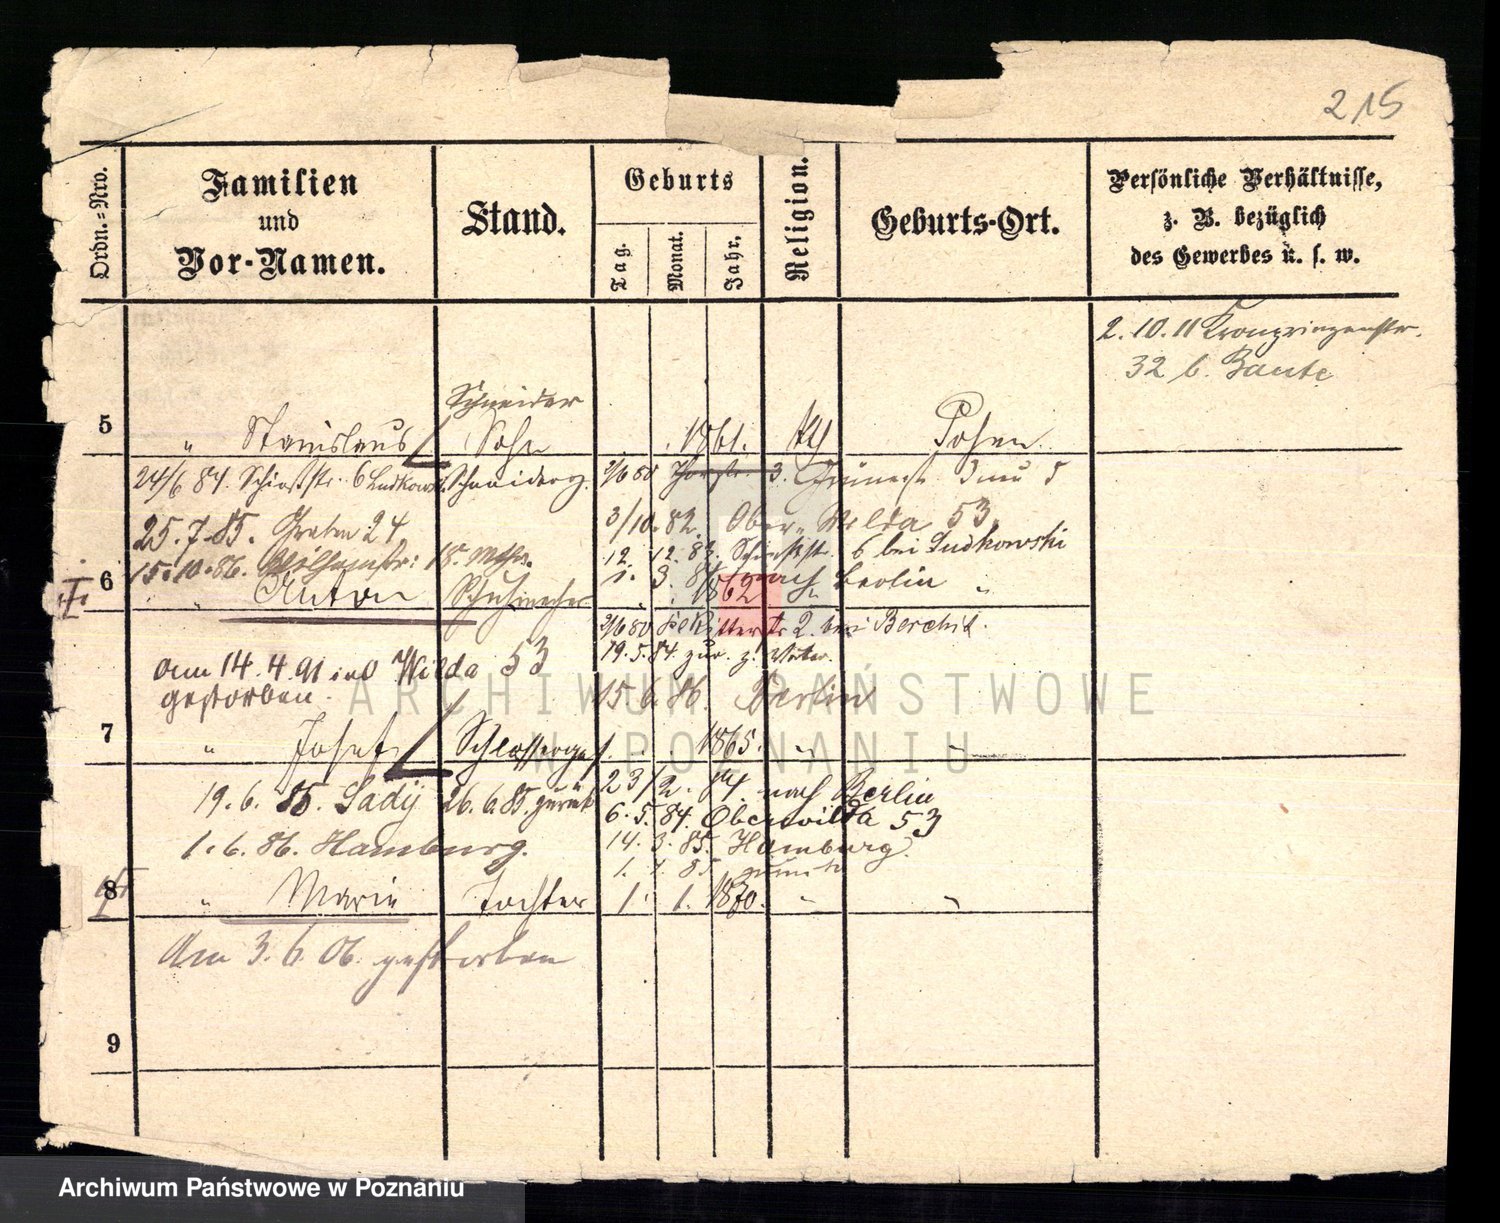 215
Ordn.=Nro.
Familien
und
Vor-Namen.
Stand.
Geburts
Tag.
Monat.
Jahr.
Religion.
Geburts-Ort.
Persönliche Verhältnisse,
z. B. bezüglich
des Gewerbes u. s. w.
2. 10. 11 Kronprinzenstr.
32 b. Baute
Schneider
5 " Stanislaus Sohn 1861. Posen.
24/6 84. Schießstr. 6 Ludkowski Schneiderg. 2/6 80 Thorstr. 3.
25. 7. 85. Graben 24 3/10. 82. Ober-Wilda 53
12. 12. 83. Schießstr. 6 bei Ludkowski
15. 10. 86. 18.
1. 3. nach Berlin
6 " Anton Schuhmacher 1862 "
2/6 80 Ritterstr 2. bei
19. 5. 84. zur. z. Vater.
am 14. 4. 91 in O Wilda 53
gestorben.
15. 6. 86. Berlin
7 " Josef Schlosserges. 1865. " "
19. 6. 85. Sady 26. 6. 85. zurück 23/2. 84. nach Berlin
6. 5. 84. Oberwilda 53
1. 6. 86. Hamburg. 14. 3. 85. Hamburg.
1. 4. 85 zurück
8 " Marie Tochter 1. 1. 1870. " "
Am 3. 6. 06. gestorben
9
ARCHIWUM PAŃSTWOWE
W POZNANIU
Archiwum Państwowe w Poznaniu